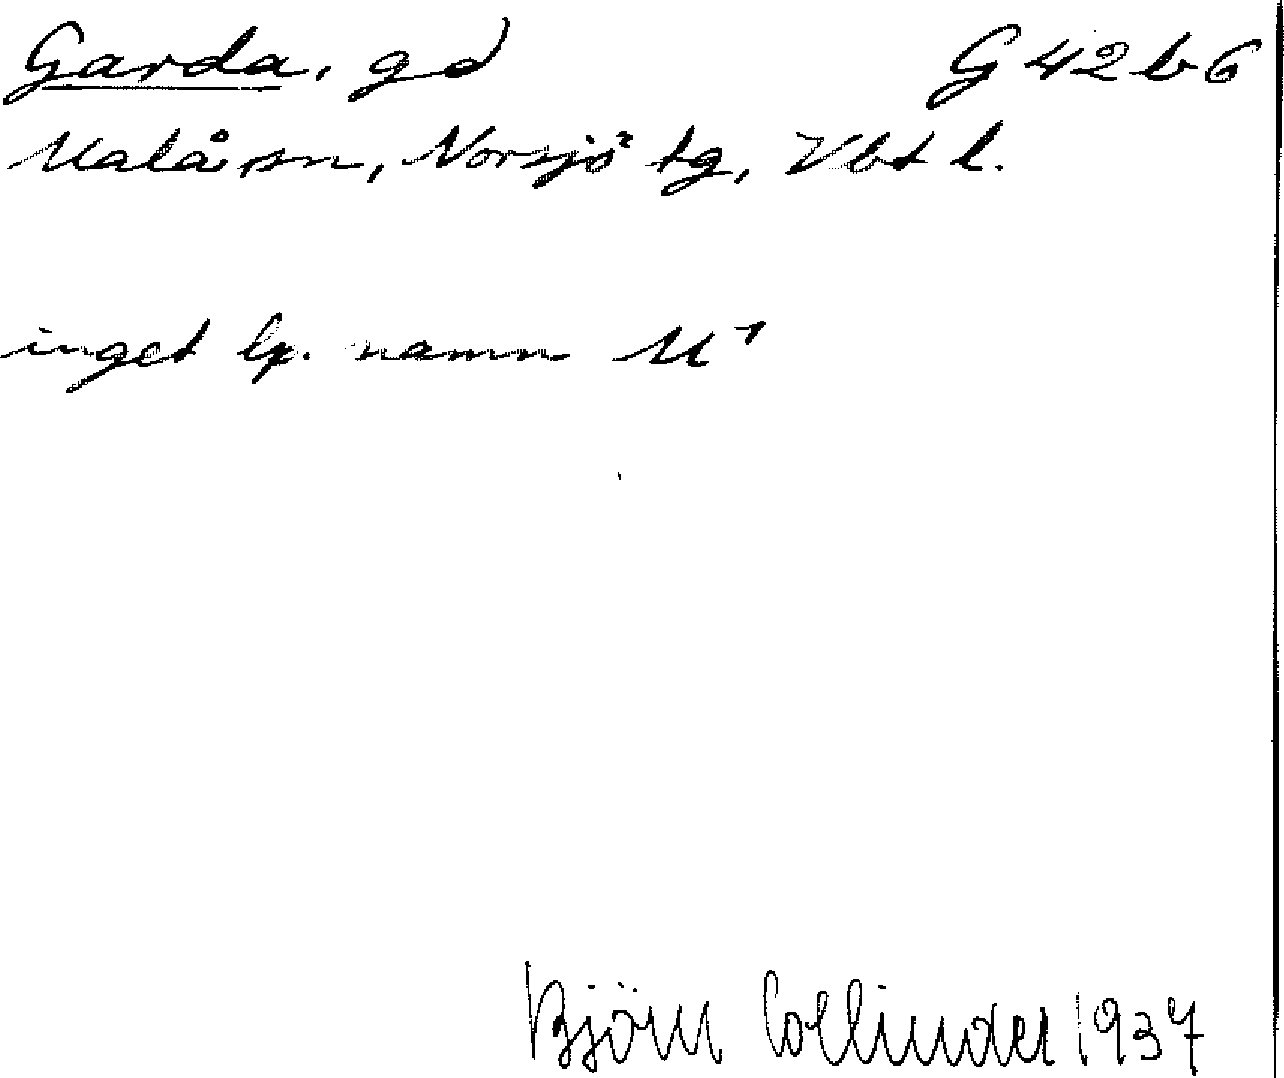 Garda, gd G 42 b 6
Malå sn, Norsjö tg, Vbt l.
inget lp. namn M¹
Björn Collinder 1937